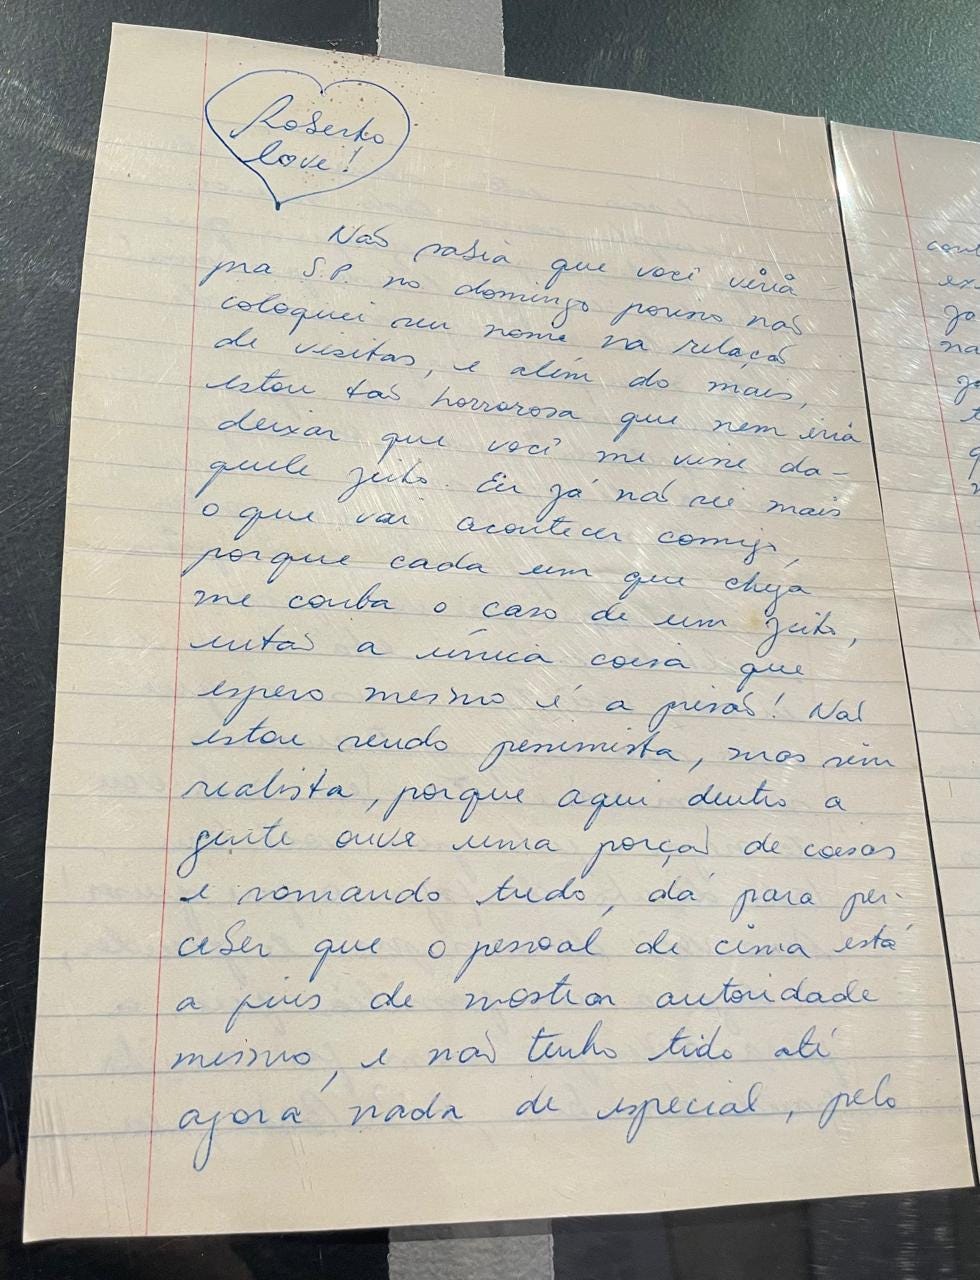 Roberto
love!
Não sabia que você viria
pra S.P. no domingo por isso não
coloquei seu nome na relação
de visitas, e além do mais,
estou tão horrorosa que nem iria
deixar que você me visse da-
quele jeito. Eu já não sei mais
o que vai acontecer comigo,
porque cada um que chega
me conta o caso de um jeito,
então a única coisa que
espero mesmo é a prisão! Não
estou sendo pessimista, mas sim
realista, porque aqui dentro a
gente ouve uma porção de coisas
e somando tudo, dá para per-
ceber que o pessoal de cima está
a fins de mostrar autoridade
mesmo, e não tenho tido até
agora nada de especial, pelo